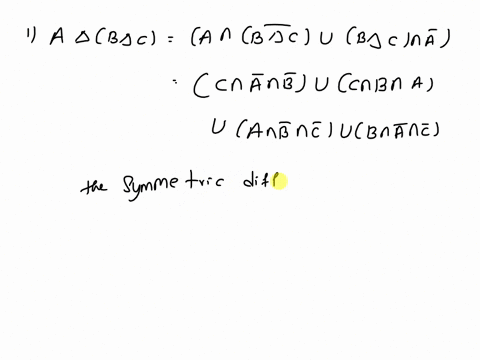 1) A Δ (BΔC) = (A ∩ (\overline{BΔC}) ∪ (BΔC) ∩ Ā)
= (C ∩ Ā ∩ B̄) ∪ (C ∩ B ∩ A)
∪ (A ∩ B̄ ∩ C̄) ∪ (B ∩ Ā ∩ C̄)
the symmetric diff